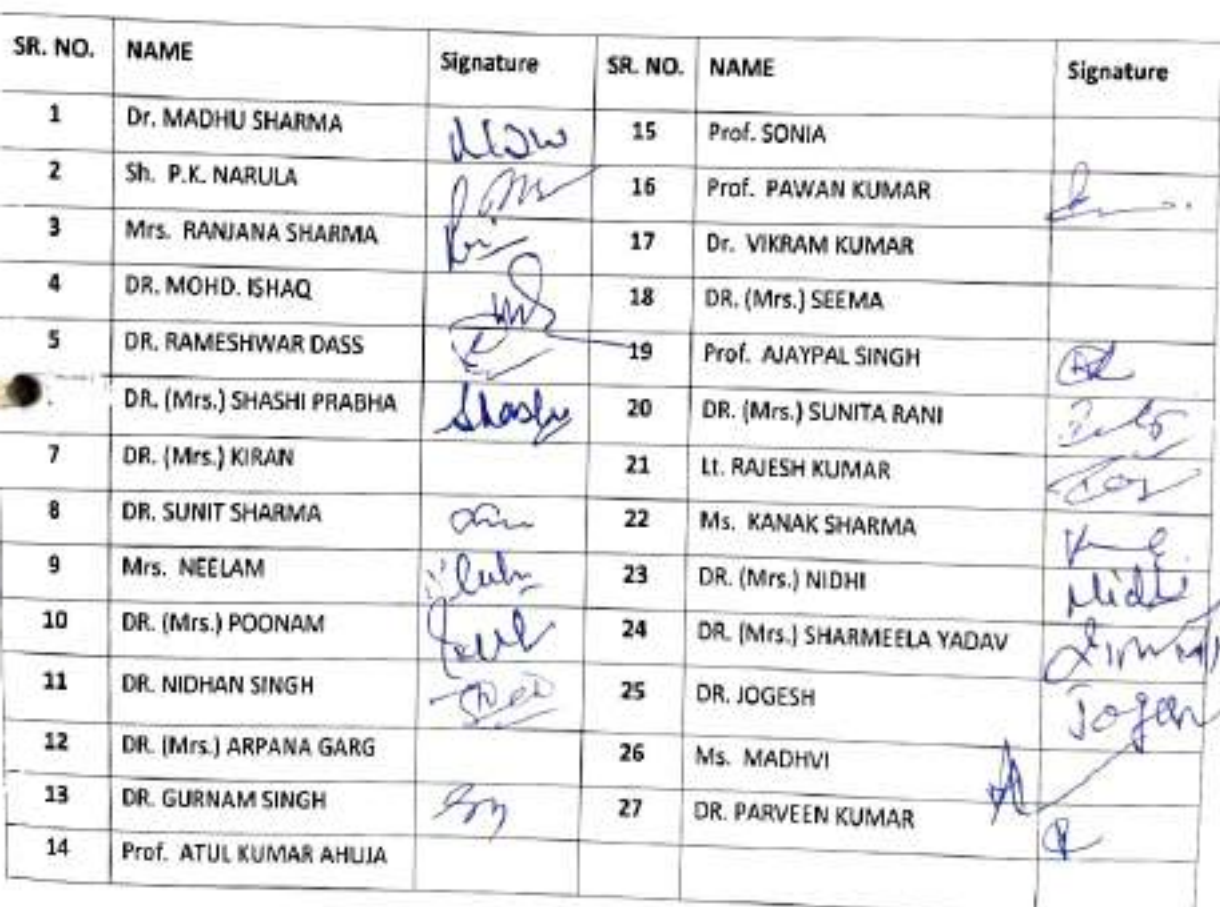 SR. NO. NAME Signature SR. NO. NAME Signature
1 Dr. MADHU SHARMA 15 Prof. SONIA
2 Sh. P.K. NARULA 16 Prof. PAWAN KUMAR
3 Mrs. RANJANA SHARMA 17 Dr. VIKRAM KUMAR
4 DR. MOHD. ISHAQ 18 DR. (Mrs.) SEEMA
5 DR. RAMESHWAR DASS 19 Prof. AJAYPAL SINGH
DR. (Mrs.) SHASHI PRABHA Shashi 20 DR. (Mrs.) SUNITA RANI
7 DR. (Mrs.) KIRAN 21 Lt. RAJESH KUMAR
8 DR. SUNIT SHARMA 22 Ms. KANAK SHARMA
9 Mrs. NEELAM 23 DR. (Mrs.) NIDHI Nidhi
10 DR. (Mrs.) POONAM 24 DR. (Mrs.) SHARMEELA YADAV
11 DR. NIDHAN SINGH 25 DR. JOGESH Jogesh
12 DR. (Mrs.) ARPANA GARG 26 Ms. MADHVI
13 DR. GURNAM SINGH 27 DR. PARVEEN KUMAR
14 Prof. ATUL KUMAR AHUJA